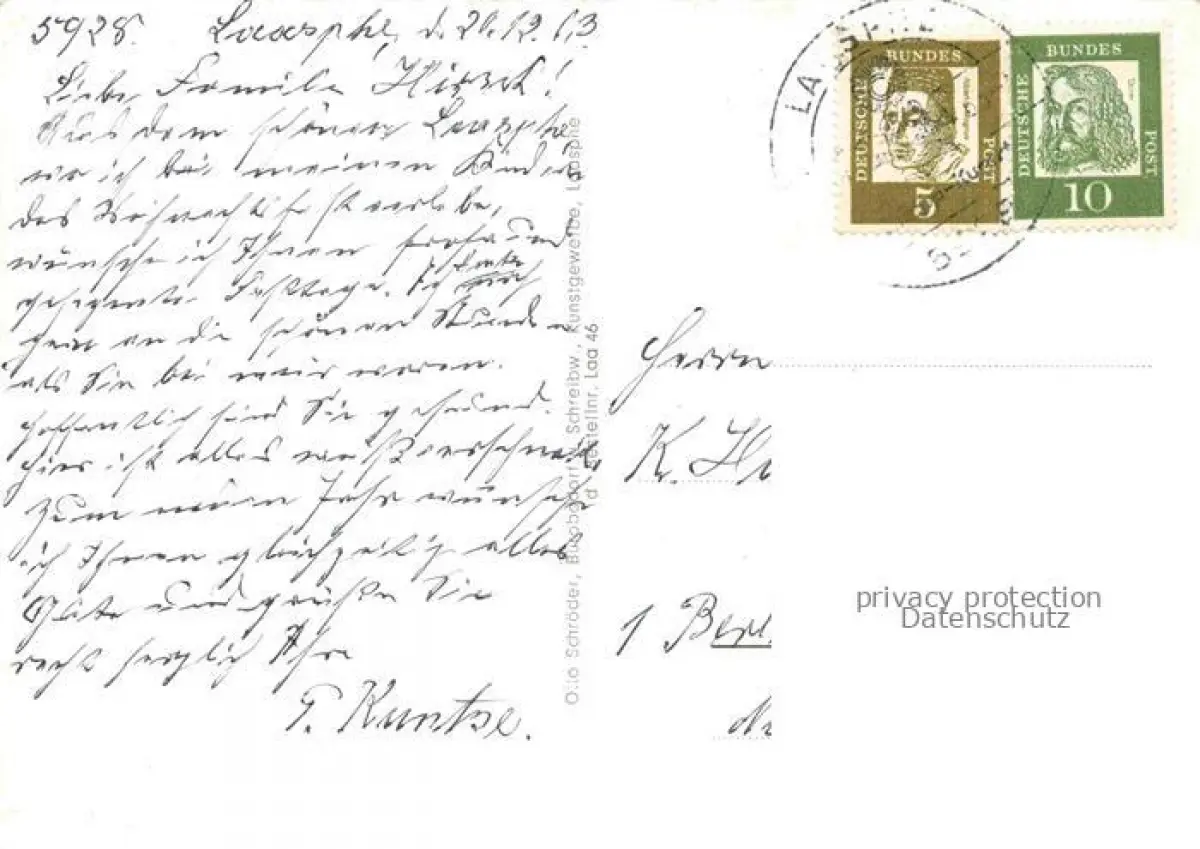 5928. Laasphe, d. 20.12.63
Liebe Familie Hirsch!
Aus dem schönen Laasphe
wo ich bei meinen Kindern
das Weihnachtsfest verlebe,
wünsche ich Ihnen frohe und
gesegnete Festtage. Ich denke noch
gern an die schönen Stunden
als Sie bei mir waren.
Hoffentlich sind Sie gesund.
Hier ist alles weiß verschneit,
Zum neuen Jahr wünsche
ich Ihnen gleichzeitig alles
Gute und grüße Sie
recht herzlich Ihre
T. Kuntze.
Otto Schröder, Schreibw., Kunstgewerbe, Laasphe
Bestellnr. Laa 46
LAASPHE
DEUTSCHE BUNDES POST
5
DEUTSCHE BUNDES POST
10
Herrn
K. Hi
1 Berl
privacy protection
Datenschutz